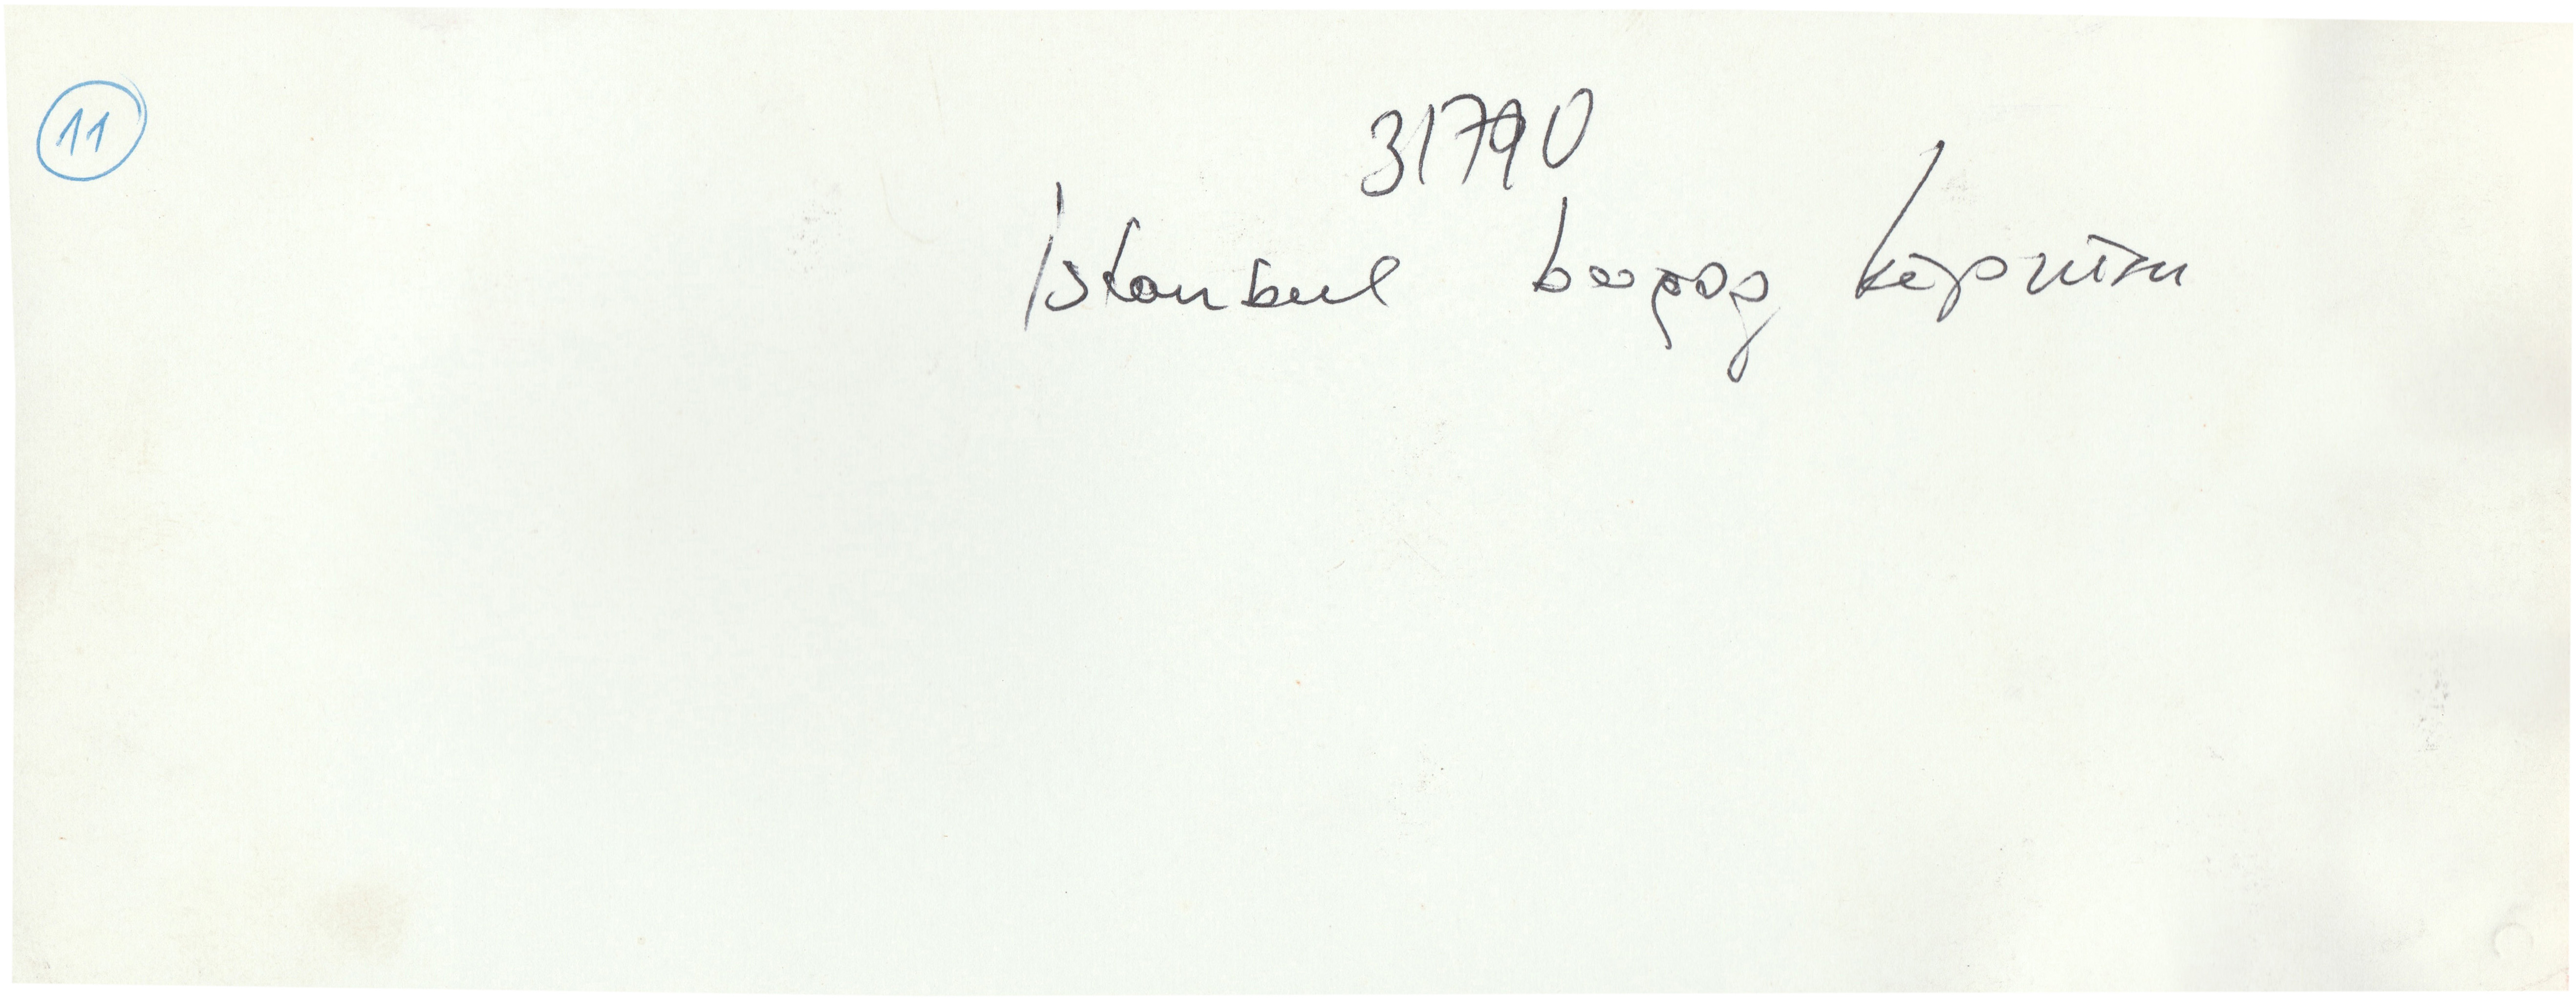 11
31790
Istanbul boğaz köprüsü